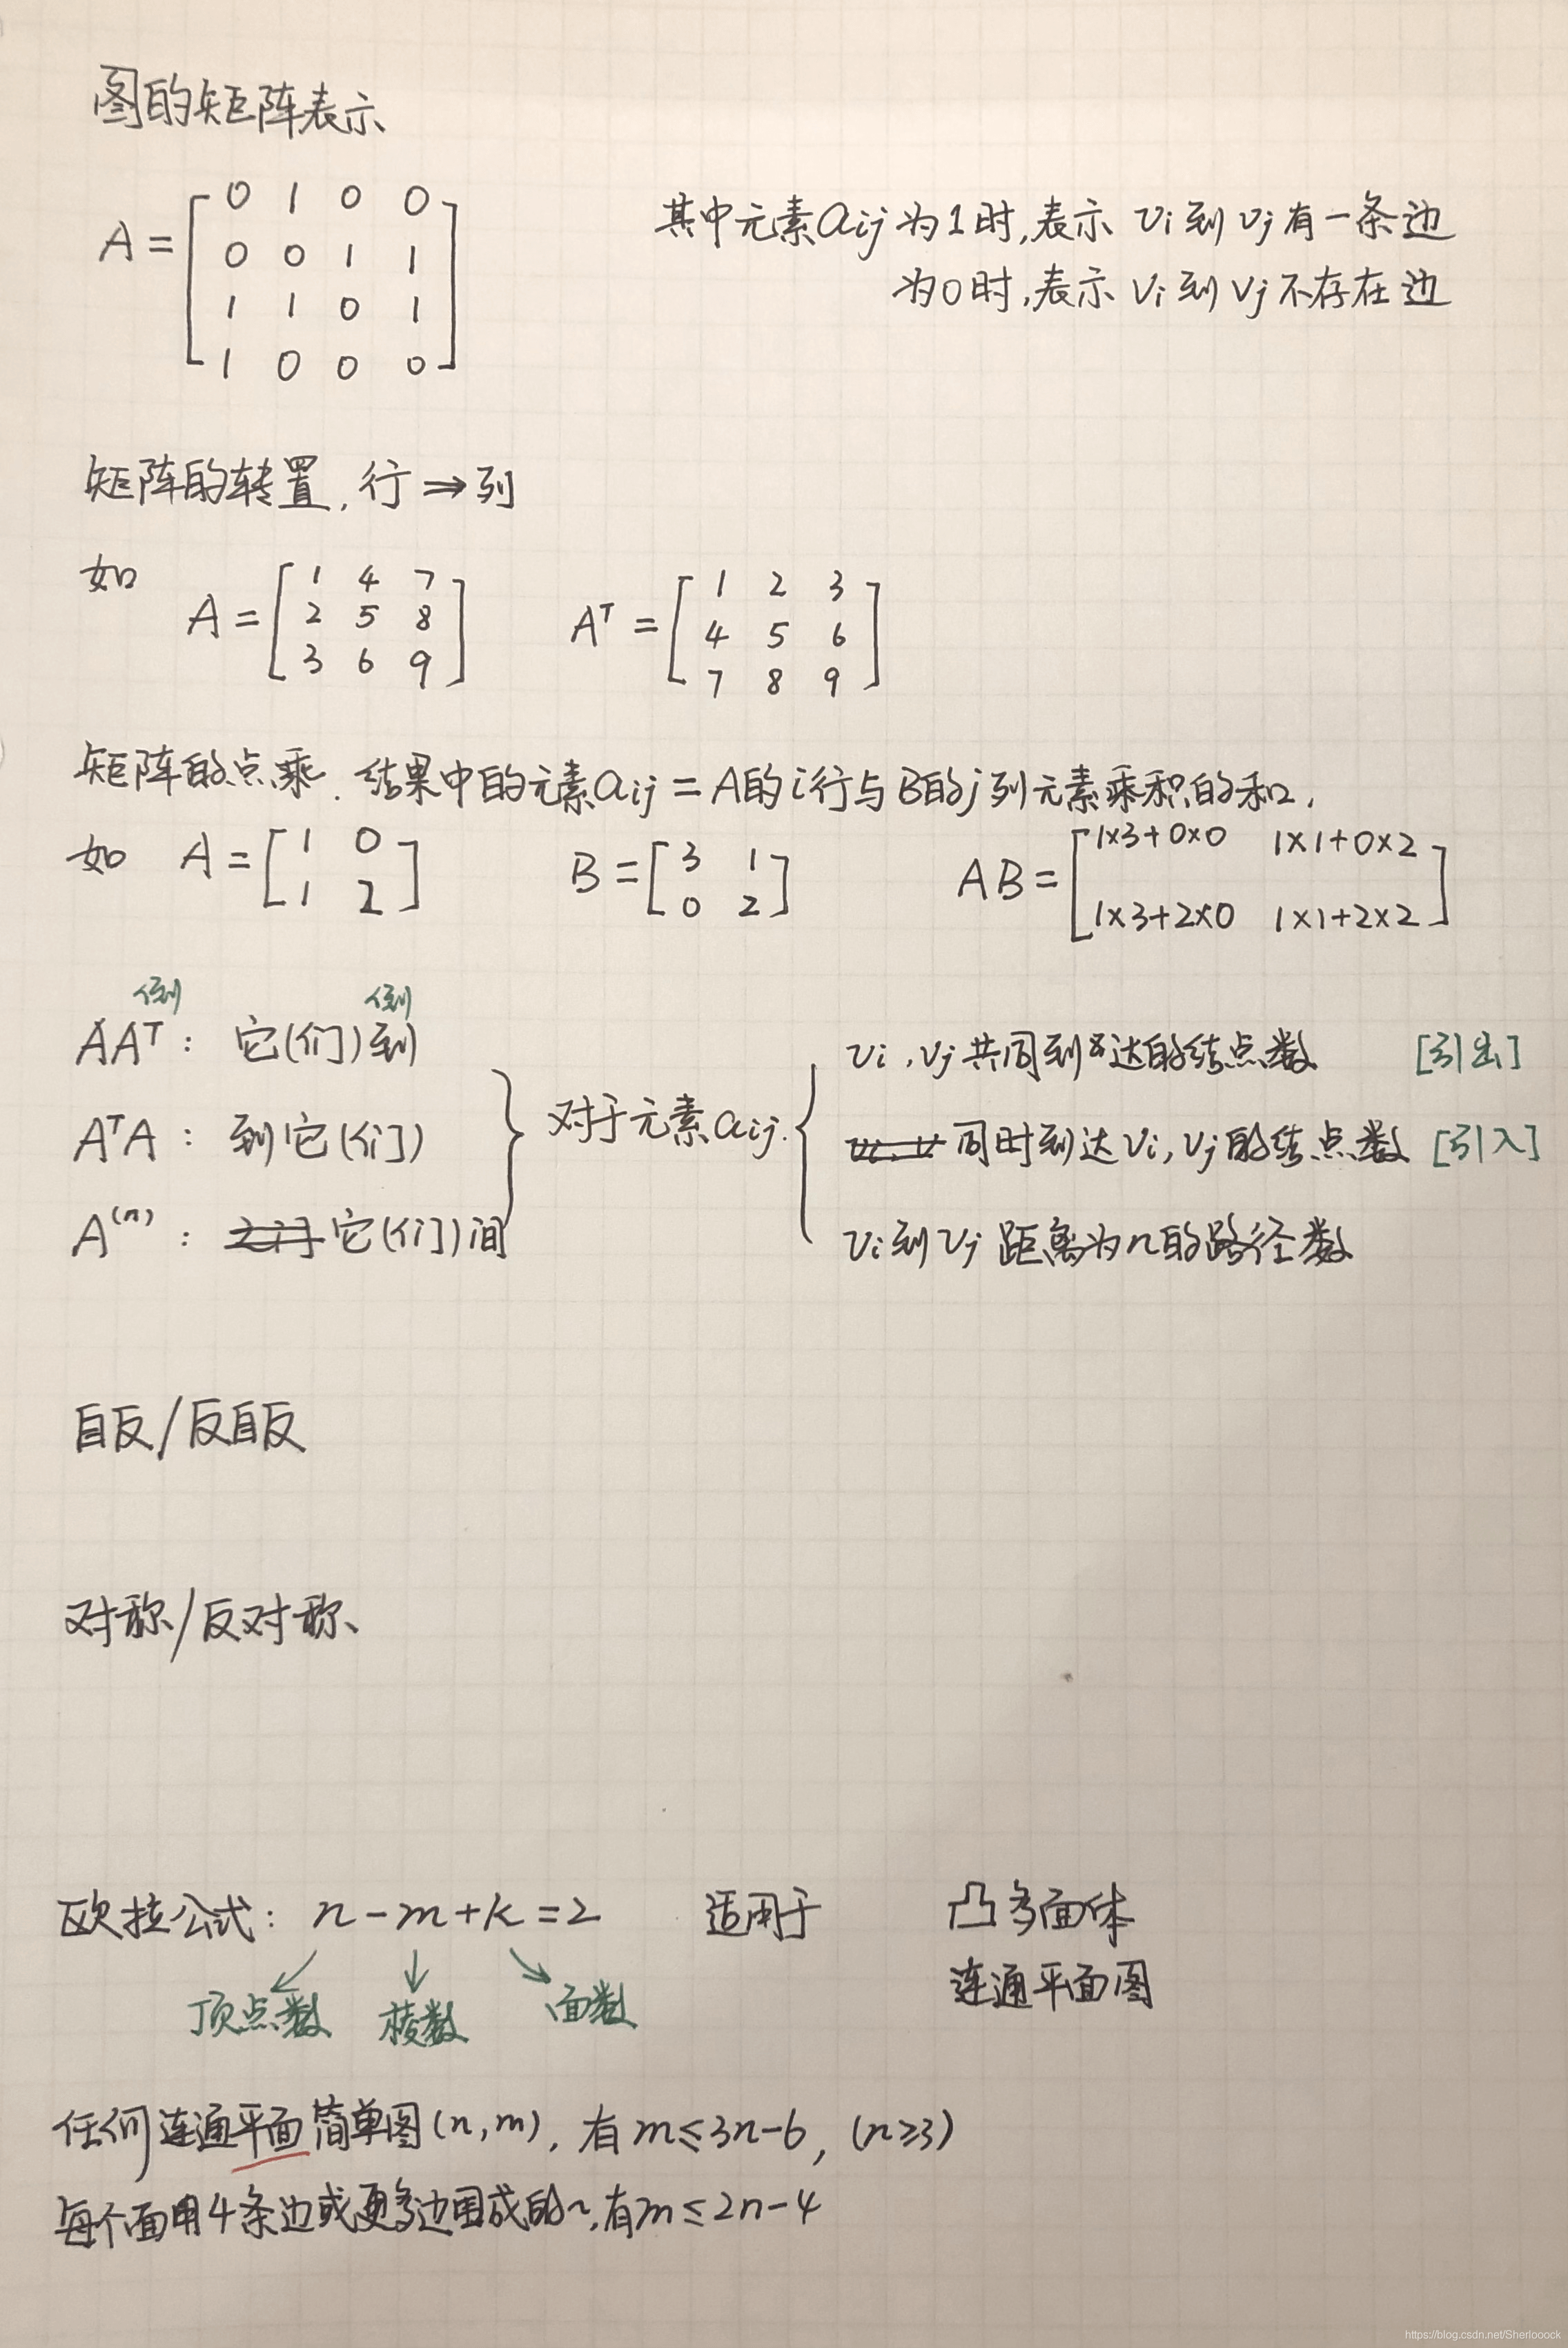 图的矩阵表示
A = [ 0 1 0 0
0 0 1 1
1 1 0 1
1 0 0 0 ]
其中元素aij为1时,表示 vi到vj有一条边
为0时,表示 vi到vj不存在边
矩阵的转置,行⇒列
如
A = [ 1 4 7
2 5 8
3 6 9 ]
Aᵀ = [ 1 2 3
4 5 6
7 8 9 ]
矩阵的点乘.结果中的元素aij = A的i行与B的j列元素乘积的和.
如 A = [ 1 0
1 2 ]
B = [ 3 1
0 2 ]
AB = [ 1×3+0×0 1×1+0×2
1×3+2×0 1×1+2×2 ]
倒 倒
AAᵀ: 它(们)到
AᵀA: 到它(们)
A⁽ⁿ⁾: 它(们)间
} 对于元素aij. {
vi,vj共同到达的结点数 [引出]
同时到达vi,vj的结点数 [引入]
vi到vj距离为n的路径数
自反/反自反
对称/反对称
欧拉公式: n-m+k=2 适用于 凸多面体
连通平面图
顶点数 棱数 面数
任何连通平面简单图(n,m),有m≤3n-6,(n≥3)
每个面用4条边或更多边围成的~,有m≤2n-4
https://blog.csdn.net/Sherlooock